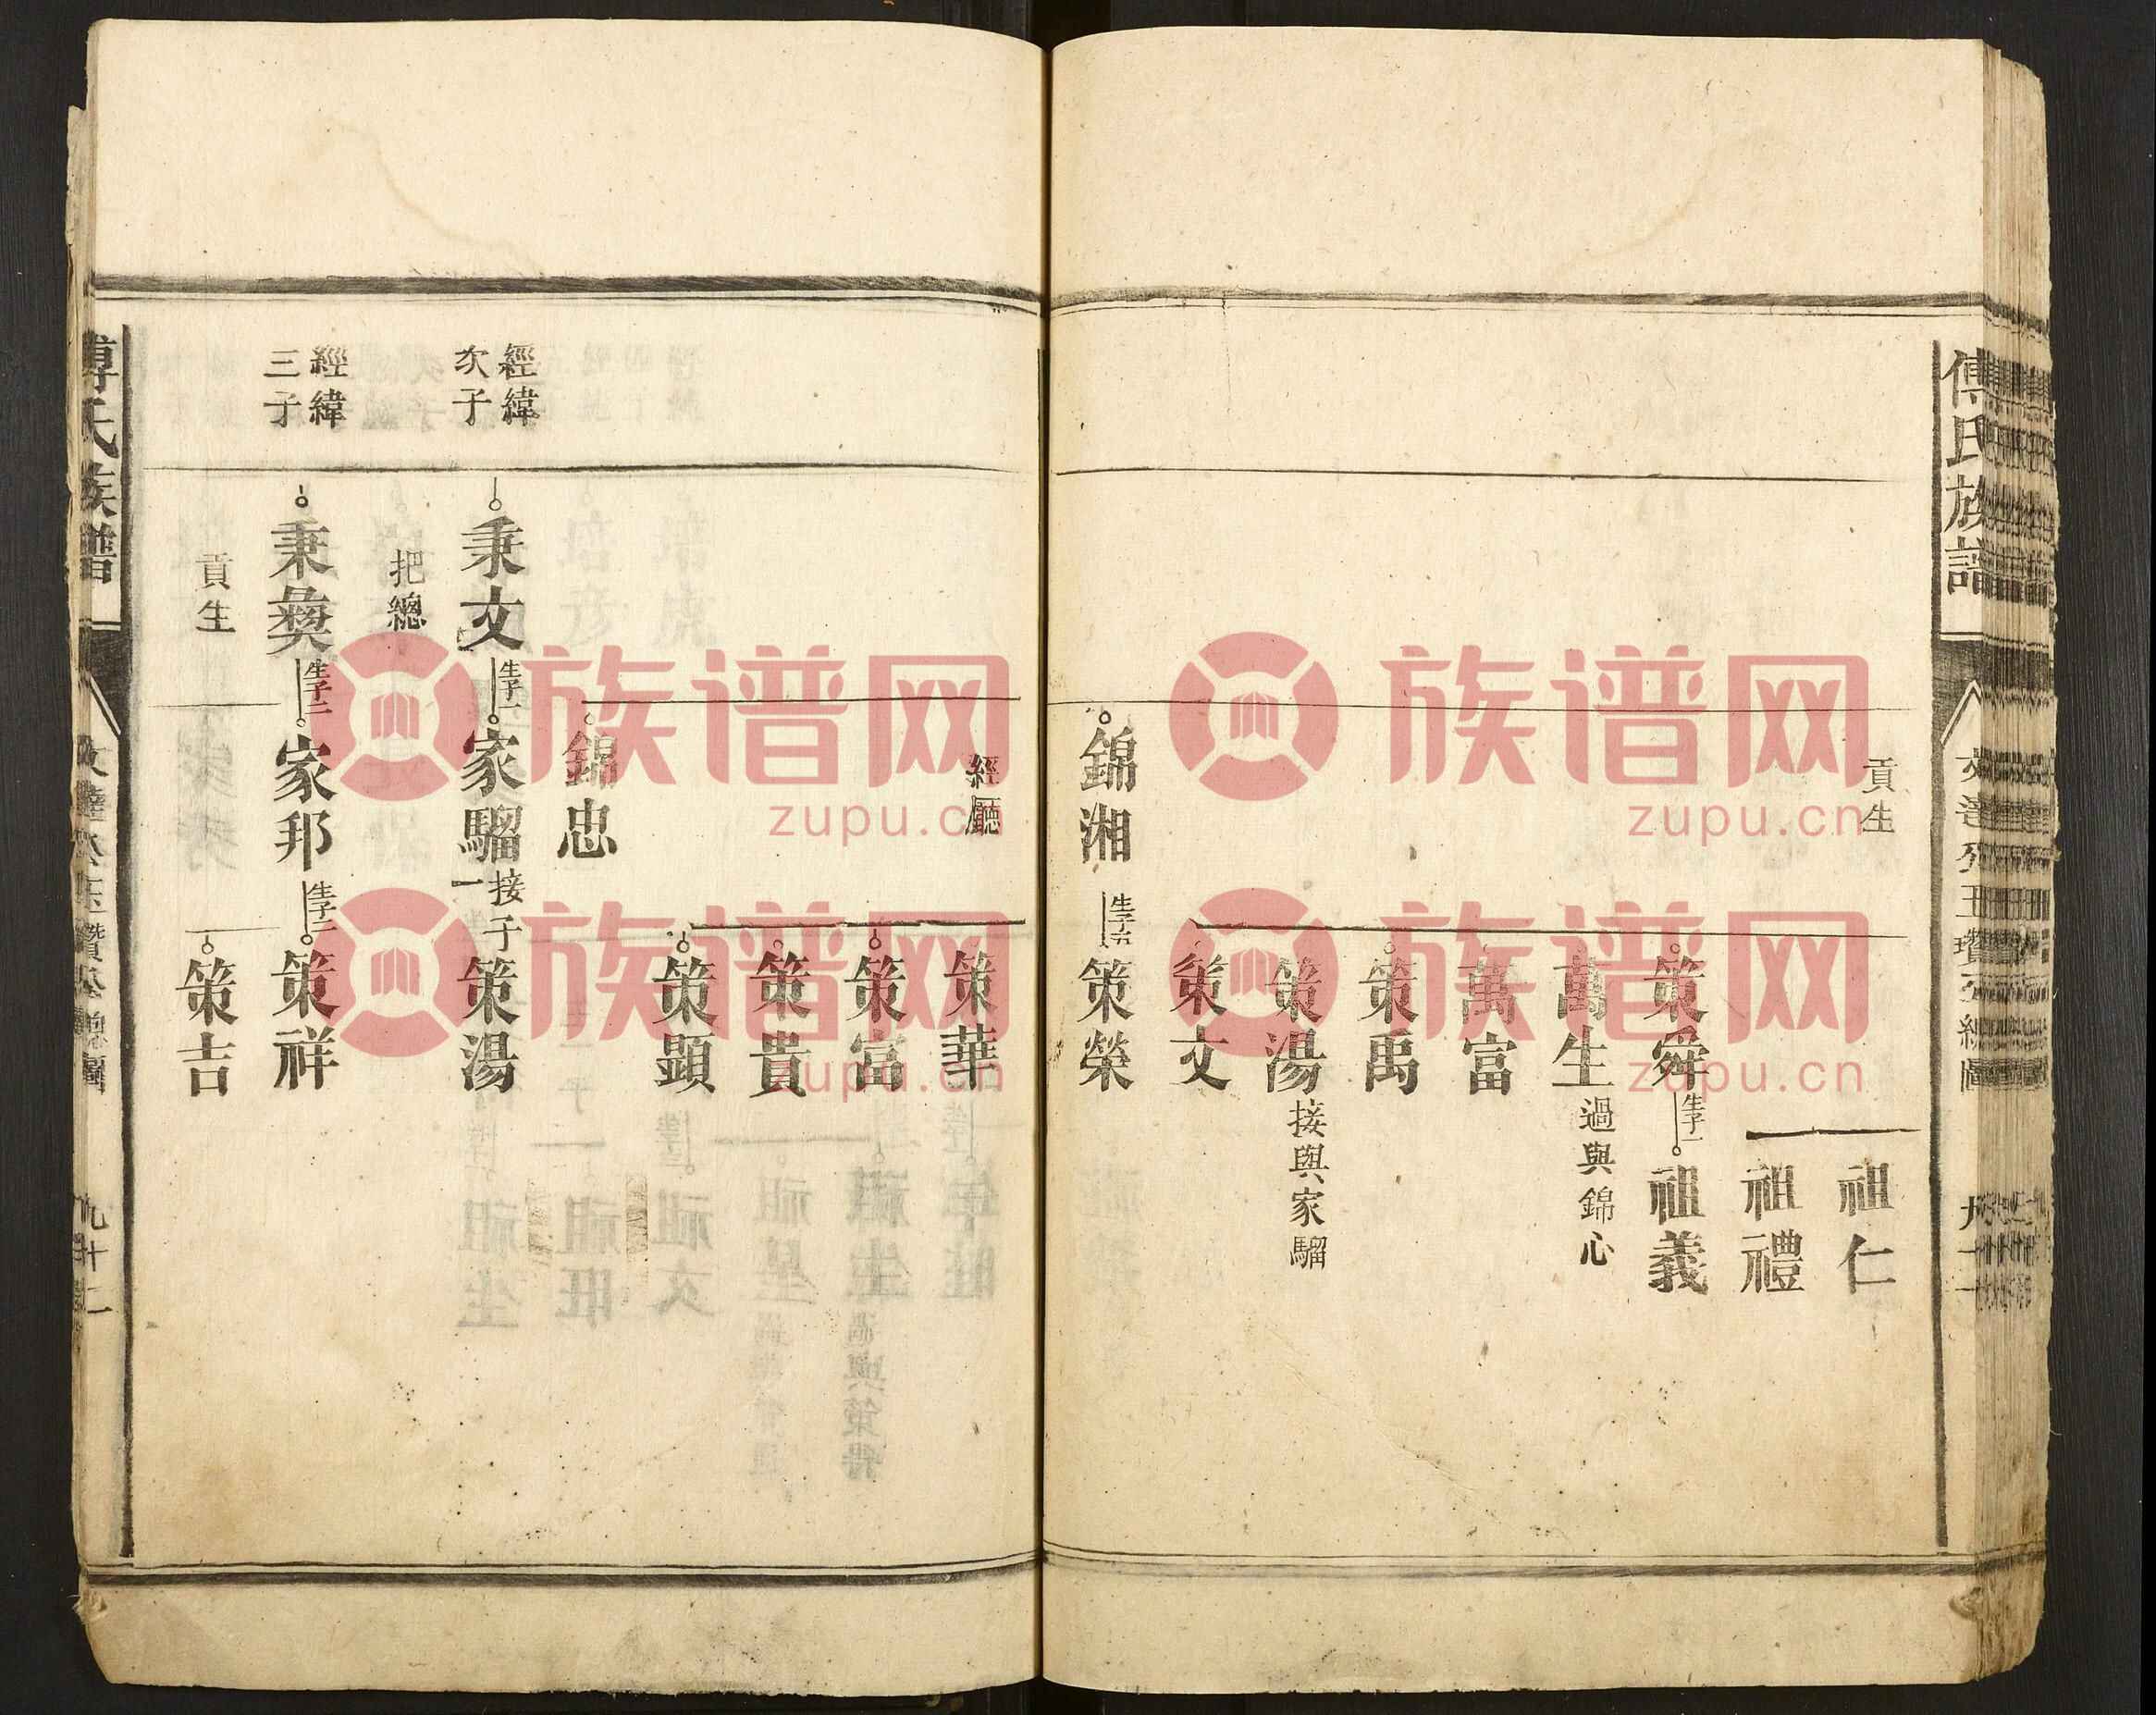 傅氏族譜
貢生
祖仁
祖禮
策舜
生子一
祖義
萬生
過與錦心
萬富
策禹
策湯
接與家騮
策文
錦湘
生子五
策榮
經廳
策華
策富
策貴
策顕
錦忠
經緯
次子
秉文
生子一
家騮
接子
一
策湯
把總
經緯
三子
秉彜
生子二
家邦
生子二
策祥
策吉
貢生
傅氏族譜
九十二
族谱网
zupu.cn
族谱网
zupu.cn
族谱网
zupu.cn
族谱网
zupu.cn